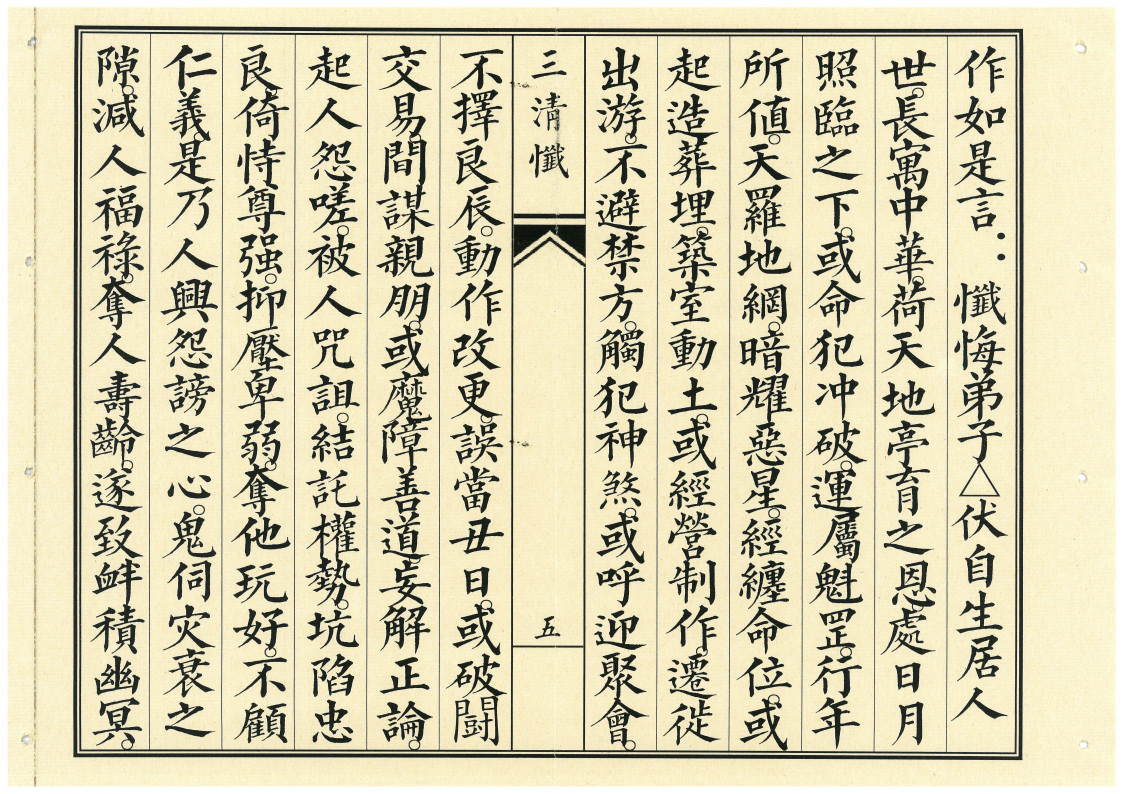 作如是言：懺悔弟子△伏自生居人
世。長寓中華。荷天地亭育之恩。處日月
照臨之下。或命犯冲破。運屬魁罡。行年
所值。天羅地網。暗耀惡星。經纏命位。或
起造葬埋。築室動土。或經營制作。遷徙
出游。不避禁方。觸犯神煞。或呼迎聚會。
三清懺
五
不擇良辰。動作改更。誤當丑日。或破鬪
交易。間謀親朋。或魔障善道。妄解正論。
起人怨嗟。被人咒詛。結託權勢。坑陷忠
良。倚恃尊强。抑壓卑弱。奪他玩好。不顧
仁義。是乃人興怨謗之心。鬼伺灾衰之
隙。減人福祿。奪人壽齡。逐致衅積幽冥。